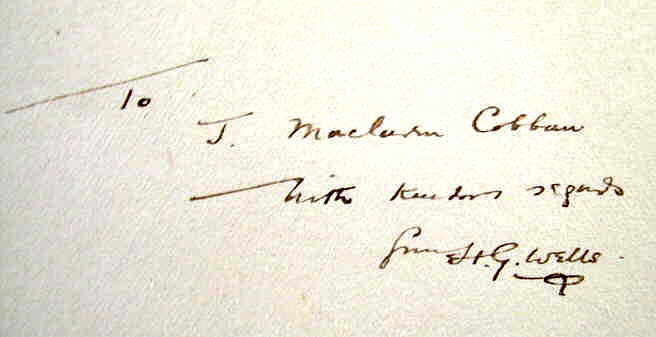 To
J. Maclaren Cobban
With kindest regards
from H.G. Wells.